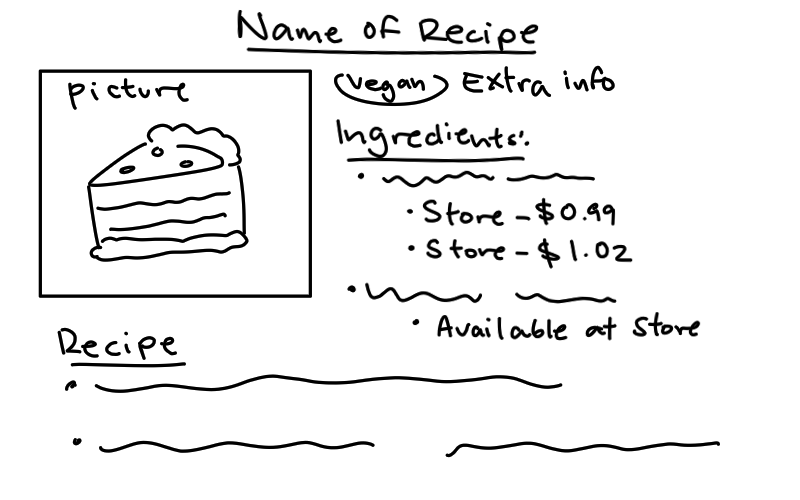 Name of Recipe
picture
vegan Extra info
Ingredients:
Store - $0.99
Store - $1.02
Available at Store
Recipe